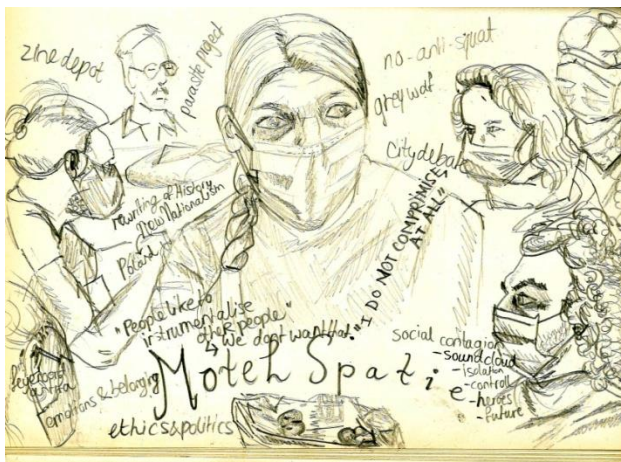 zine depot
parasite project
no-anti-squat
grey waf
City debat
rewriting of History
New Nationalism
Poland
"I DO NOT COMPRIMICE
AT ALL"
"People like to
instrumentalise
other people"
↳ we dont want that.
Moteh Spati
e
social contagion
-soundcloud
-isolation
-controll
-heroes
-future
feyenoord
antifa
emotions & belonging
ethics&politics